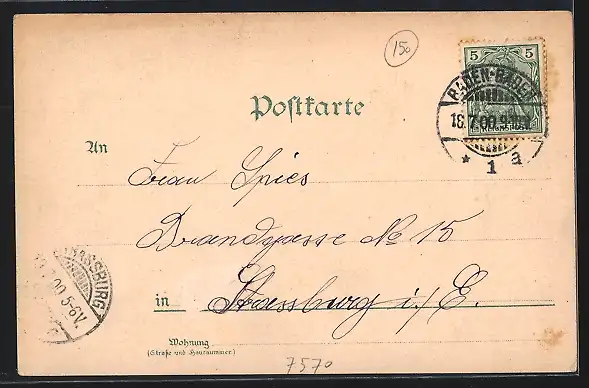 150
5 5
REICHSPOST
BADEN-BADEN
16.7.00.9-10V
* 1 a
Postkarte
An
Frau Spies
Brandgasse No 15
in Strassburg i/E.
STRASSBURG
7.00 5-6V.
Wohnung
(Straße und Hausnummer)
7570